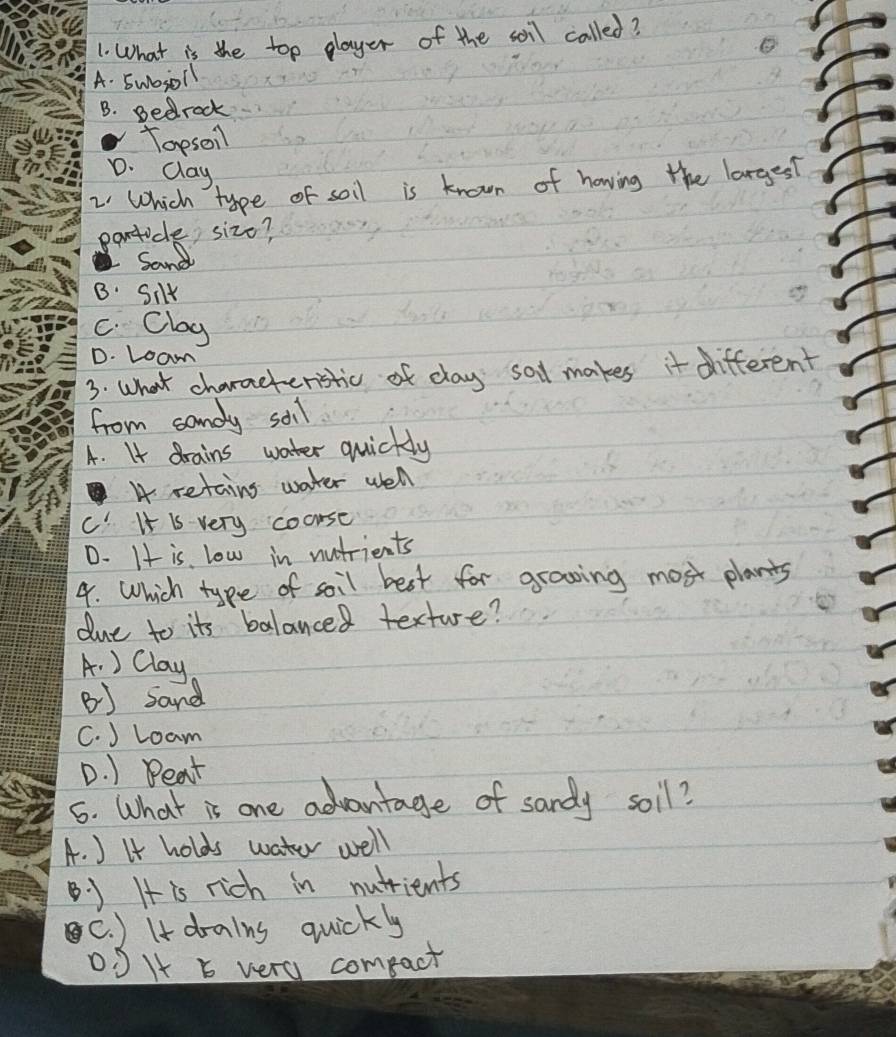 1. What is the top player of the soil called?
A. Subsoil
B. Bedrock
Topsoil
D. Clay
2. Which type of soil is known of having the largest
particle size?
Sand
B. Silt
C. Clay
D. Loam
3. What characteristic of clay soil makes it different
from sandy soil
A. It drains water quickly
It retains water well
C. It is very coarse
D. It is low in nutrients
4. Which type of soil best for growing most plants
due to its balanced texture?
A.) Clay
B) Sand
C.) Loam
D.) Peat
5. What is one advantage of sandy soil?
A.) It holds water well
B.) It is rich in nutrients
C.) It drains quickly
D.) It is very compact